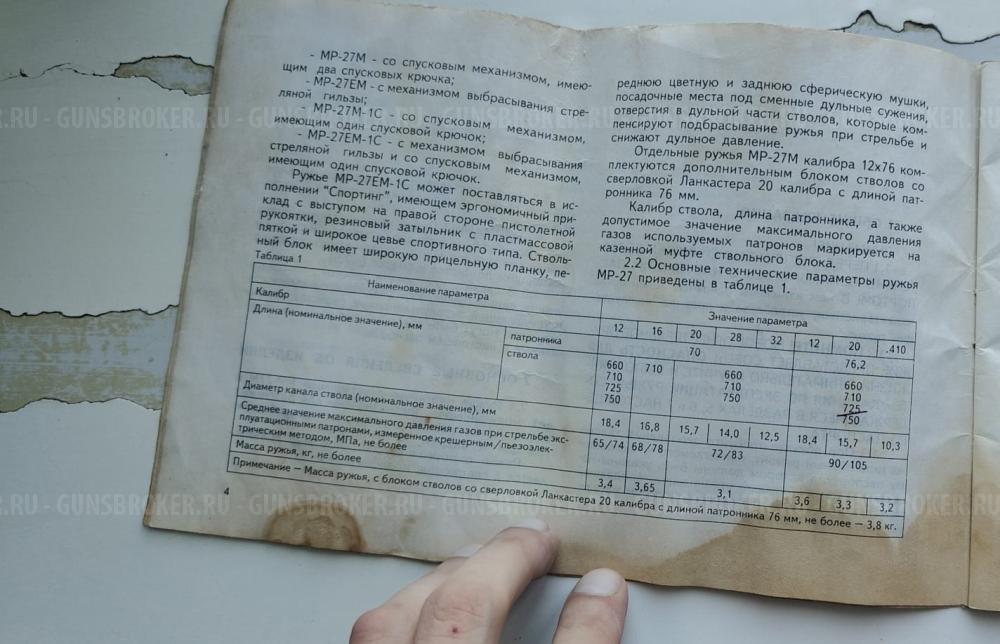 - МР-27М - со спусковым механизмом, имею-
щим два спусковых крючка;
- МР-27ЕМ - с механизмом выбрасывания стре-
ляной гильзы;
- МР-27М-1С - со спусковым механизмом,
имеющим один спусковой крючок;
- МР-27ЕМ-1С - с механизмом выбрасывания
стреляной гильзы и со спусковым механизмом,
имеющим один спусковой крючок.
Ружье МР-27ЕМ-1С может поставляться в ис-
полнении "Спортинг", имеющем эргономичный при-
клад с выступом на правой стороне пистолетной
рукоятки, резиновый затыльник с пластмассовой
пяткой и широкое цевье спортивного типа. Стволь-
ный блок имеет широкую прицельную планку, пе-
реднюю цветную и заднюю сферическую мушки,
посадочные места под сменные дульные сужения,
отверстия в дульной части стволов, которые ком-
пенсируют подбрасывание ружья при стрельбе и
снижают дульное давление.
Отдельные ружья МР-27М калибра 12х76 ком-
плектуются дополнительным блоком стволов со
сверловкой Ланкастера 20 калибра с длиной пат-
ронника 76 мм.
Калибр ствола, длина патронника, а также
допустимое значение максимального давления
газов используемых патронов маркируется на
казенной муфте ствольного блока.
2.2 Основные технические параметры ружья
МР-27 приведены в таблице 1.
Таблица 1
Наименование параметра Значение параметра
Калибр 12 16 20 28 32 12 20 .410
Длина (номинальное значение), мм патронника 70 76,2
ствола 660 710 660 660
710 710 710
725 750 725
750 750
Диаметр канала ствола (номинальное значение), мм 18,4 16,8 15,7 14,0 12,5 18,4 15,7 10,3
Среднее значение максимального давления газов при стрельбе экс-
плуатационными патронами, измеренное крешерным/пьезоэлек-
трическим методом, МПа, не более 65/74 68/78 72/83 90/105
Масса ружья, кг, не более 3,4 3,65 3,1 3,6 3,3 3,2
Примечание – Масса ружья, с блоком стволов со сверловкой Ланкастера 20 калибра с длиной патронника 76 мм, не более – 3,8 кг.
4
GUNSBROKER.RU - GUNSBROKER.RU - GUNSBROKER.RU - GUNSBROKER.RU
GUNSBROKER.RU - GUNSBROKER.RU - GUNSBROKER.RU - GUNSBROKER.RU